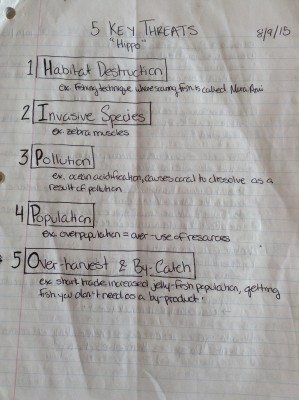 5 KEY THREATS 8/9/15
"Hippo"
1 Habitat Destruction
ex. Fishing technique where scaring fish is called Muro-Ami
2 Invasive Species
ex. zebra muscles
3 Pollution
ex. ocean acidification, causes coral to dissolve as a
result of pollution
4 Population
ex. overpopulation = over-use of resources
5 Over-harvest & By-Catch
ex. shark trade increased jelly-fish population, getting
fish you don't need as a by-product.